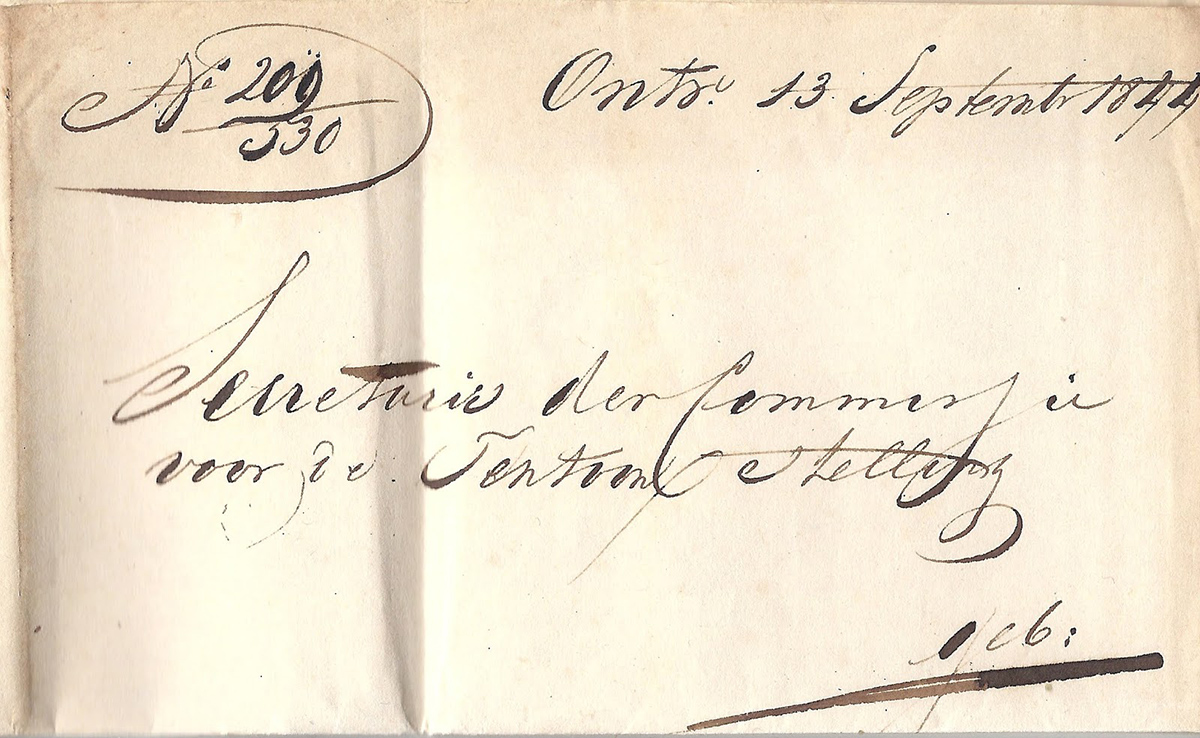 No. 209 Ontv. 13 Septembr 1844
330
Secretarie der Commissie
voor de Tentoon Stelling
geb: